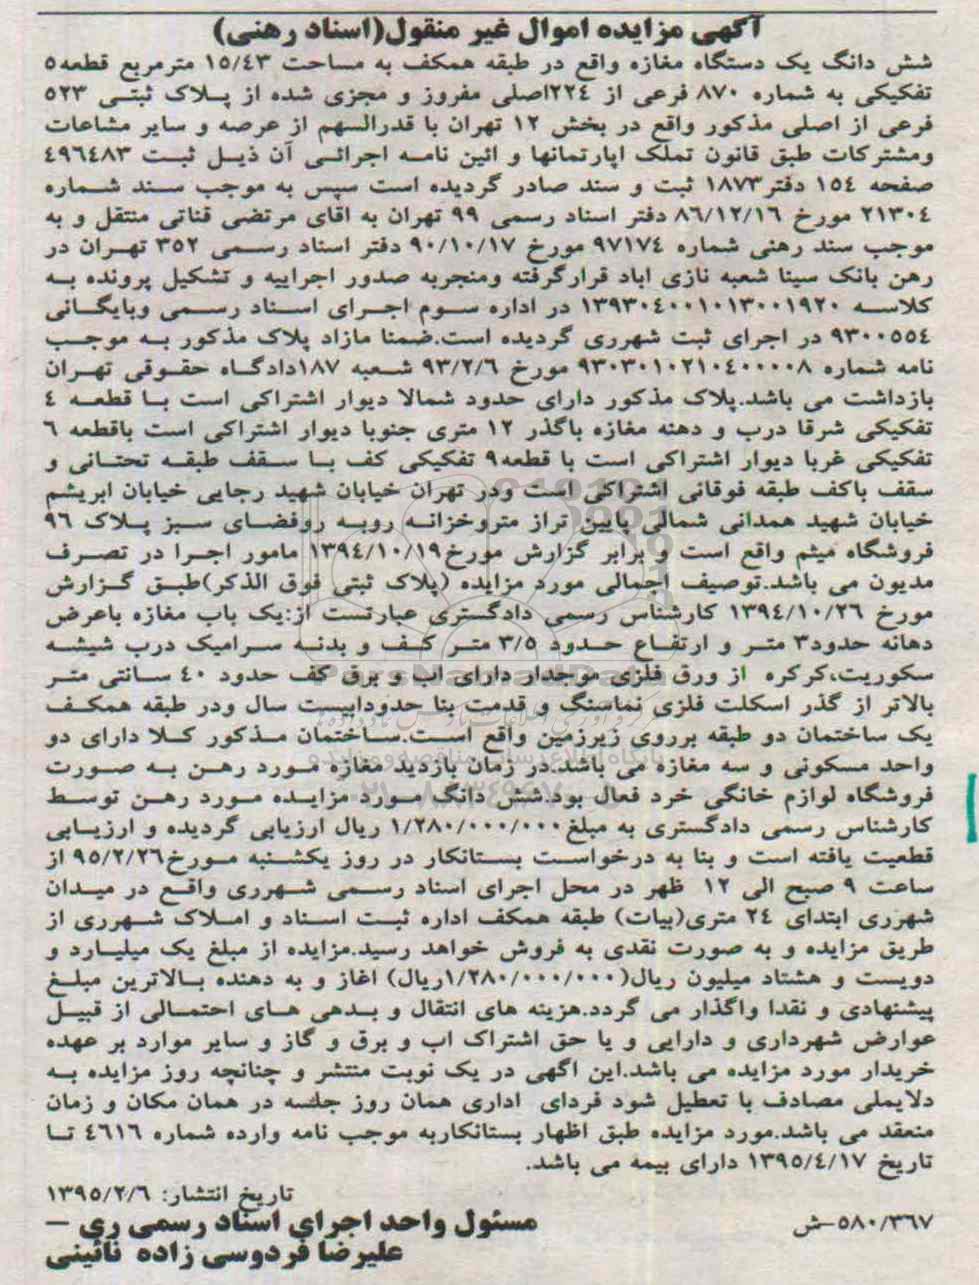 آگهی مزایده اموال غیر منقول(اسناد رهنی)
شش دانگ یک دستگاه مغازه واقع در طبقه همکف به مساحت ۱۵/۴۳ مترمربع قطعه۵
تفکیکی به شماره ۸۷۰ فرعی از ۲۲۴اصلی مفروز و مجزی شده از پلاک ثبتی ۵۲۳
فرعی از اصلی مذکور واقع در بخش ۱۲ تهران با قدرالسهم از عرصه و سایر مشاعات
ومشترکات طبق قانون تملک اپارتمانها و ائین نامه اجرائی آن ذیل ثبت ۴۹۶۴۸۳
صفحه ۱۵۴ دفتر۱۸۷۳ ثبت و سند صادر گردیده است سپس به موجب سند شماره
۲۱۳۰۴ مورخ ۸۶/۱۲/۱۶ دفتر اسناد رسمی ۹۹ تهران به اقای مرتضی قناتی منتقل و به
موجب سند رهنی شماره ۹۷۱۷۴ مورخ ۹۰/۱۰/۱۷ دفتر اسناد رسمی ۳۵۲ تهران در
رهن بانک سینا شعبه نازی اباد قرارگرفته ومنجربه صدور اجراییه و تشکیل پرونده به
کلاسه ۱۳۹۳۰۴۰۰۱۰۱۳۰۰۱۹۲۰ در اداره سوم اجرای اسناد رسمی وبایگانی
۹۳۰۰۵۵۴ در اجرای ثبت شهرری گردیده است.ضمنا مازاد پلاک مذکور به موجب
نامه شماره ۹۳۰۳۰۱۰۲۱۰۴۰۰۰۰۸ مورخ ۹۳/۲/۶ شعبه ۱۸۷دادگاه حقوقی تهران
بازداشت می باشد.پلاک مذکور دارای حدود شمالا دیوار اشتراکی است با قطعه ۴
تفکیکی شرقا درب و دهنه مغازه باگذر ۱۲ متری جنوبا دیوار اشتراکی است باقطعه ۶
تفکیکی غربا دیوار اشتراکی است با قطعه۹ تفکیکی کف با سقف طبقه تحتانی و
سقف باکف طبقه فوقانی اشتراکی است ودر تهران خیابان شهید رجایی خیابان ابریشم
خیابان شهید همدانی شمالی پایین تراز متروخزانه روبه روفضای سبز پلاک ۹۶
فروشگاه میثم واقع است و برابر گزارش مورخ۱۳۹۴/۱۰/۱۹ مامور اجرا در تصرف
مدیون می باشد.توصیف اجمالی مورد مزایده (پلاک ثبتی فوق الذکر)طبق گزارش
مورخ ۱۳۹۴/۱۰/۲۶ کارشناس رسمی دادگستری عبارتست از:یک باب مغازه باعرض
دهانه حدود۳ متر و ارتفاع حدود ۳/۵ متر کف و بدنه سرامیک درب شیشه
سکوریت،کرکره از ورق فلزی موجدار دارای اب و برق کف حدود ۴۰ سانتی متر
بالاتر از گذر اسکلت فلزی نماسنگ و قدمت بنا حدودابیست سال ودر طبقه همکف
یک ساختمان دو طبقه برروی زیرزمین واقع است.ساختمان مذکور کلا دارای دو
واحد مسکونی و سه مغازه می باشد.در زمان بازدید مغازه مورد رهن به صورت
فروشگاه لوازم خانگی خرد فعال بود.شش دانگ مورد مزایده مورد رهن توسط
کارشناس رسمی دادگستری به مبلغ ۱/۲۸۰/۰۰۰/۰۰۰ ریال ارزیابی گردیده و ارزیابی
قطعیت یافته است و بنا به درخواست بستانکار در روز یکشنبه مورخ۹۵/۲/۲۶ از
ساعت ۹ صبح الی ۱۲ ظهر در محل اجرای اسناد رسمی شهرری واقع در میدان
شهرری ابتدای ۲۴ متری(بیات) طبقه همکف اداره ثبت اسناد و املاک شهرری از
طریق مزایده و به صورت نقدی به فروش خواهد رسید.مزایده از مبلغ یک میلیارد و
دویست و هشتاد میلیون ریال(۱/۲۸۰/۰۰۰/۰۰۰ریال) اغاز و به دهنده بالاترین مبلغ
پیشنهادی و نقدا واگذار می گردد.هزینه های انتقال و بدهی های احتمالی از قبیل
عوارض شهرداری و دارایی و یا حق اشتراک اب و برق و گاز و سایر موارد بر عهده
خریدار مورد مزایده می باشد.این اگهی در یک نوبت منتشر و چنانچه روز مزایده به
دلایملی مصادف با تعطیل شود فردای اداری همان روز جلسه در همان مکان و زمان
منعقد می باشد.مورد مزایده طبق اظهار بستانکاربه موجب نامه وارده شماره ۴۶۱۶ تا
تاریخ ۱۳۹۵/۴/۱۷ دارای بیمه می باشد.
تاریخ انتشار: ۱۳۹۵/۲/۶
۵۸۰/۳۶۷-ش
مسئول واحد اجرای اسناد رسمی ری –
علیرضا فردوسی زاده نائینی